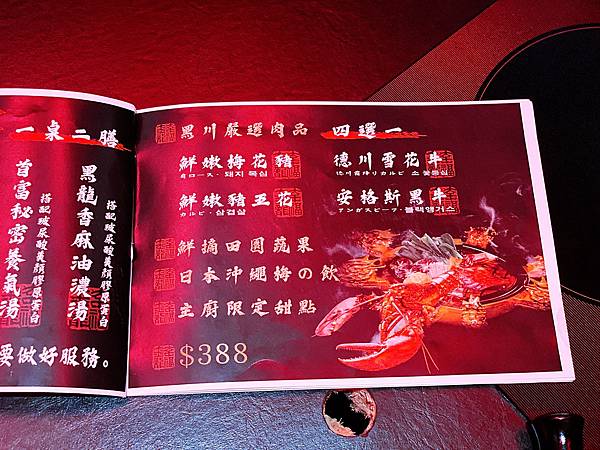 一桌二膳
黑龍香麻油濃湯
搭配玻尿酸美顏膠原蛋白
首富秘密養氣湯
搭配玻尿酸美顏膠原蛋白
要做好服務。
黑川嚴選肉品 四選一
鮮嫩梅花豬 德川雪花牛
肩ロース・돼지 목심
鮮嫩豬五花 安格斯黑牛
カルビ・삼겹살 アンガスビーフ・블랙앵거스
鮮摘田園蔬果
日本沖繩梅の飲
主廚限定甜點
$388